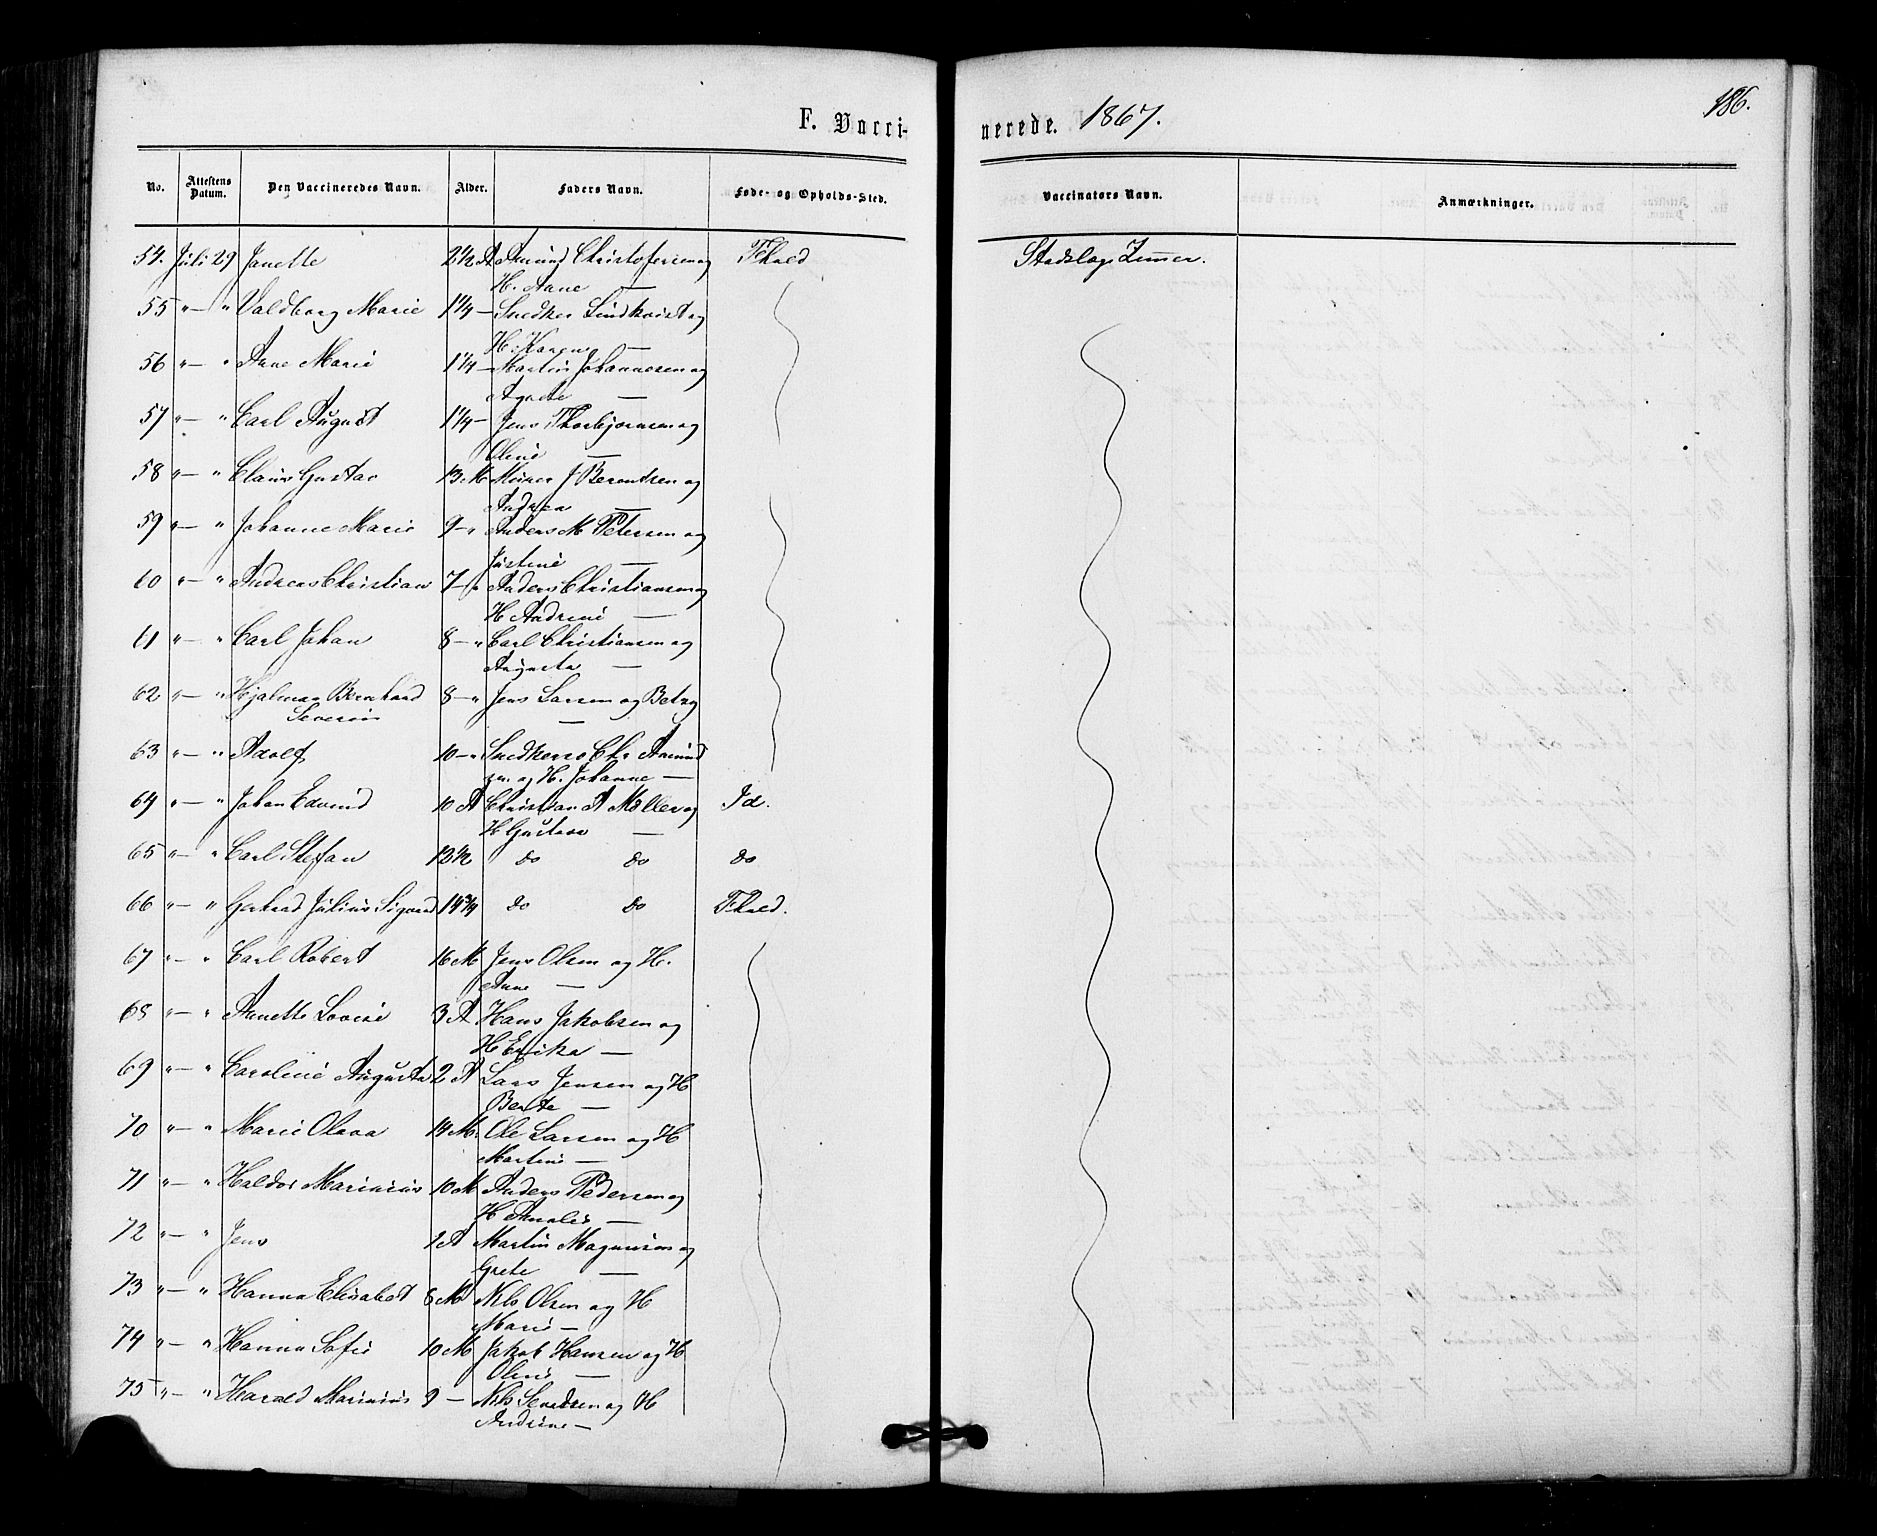 F. Vacci- nerede. 1867. 186.
No. Attestens Datum. Den Vaccineredes Navn. Alder. Faders Navn. Føde- og Opholds-Sted. Vaccinators Navn. Anmærkninger.
54. Juli 29 Janette 2 1/2 A Amund Christofersen og Fhald Stadslæge Zimmer.
H. Anne —
55 " — " Valdborg Marie 1 1/4 — Snedker Lindkvist og
H. Karen —
56 " — " Anne Marie 1 1/4 — Martin Johannesen og
Agnete —
57 " — " Carl August 1 1/4 — Jens Thorbjørnsen og
Oline —
58 " — " Claus Gustav 13 M Murer J Berentsen og
Andrea —
59 " — " Johanne Marie 9 — " Anders M Petersen og
Justine —
60 " — " Andreas Christian 7 — " Anders Christiansen og
H Andrine —
61 " — " Carl Johan 8 — " Carl Christiansen og
Augusta —
62 " — " Hjalmar Bernhard 8 — " Jens Larsen og Betzy
Severin —
63 " — " Adolf 10 — " Snedkersv Chr Amund
sen og H. Johanne —
64 " — " Johan Edvind 10 A Christian A Møller og Id.
H Gustava —
65 " — " Carl Stefan 13 1/2 do do do
66 " — " Gerhard Julius Sigvard 14 3/4 do do Fhald.
67 " — " Carl Robert 16 M Jens Olsen og H.
Anne —
68 " — " Anette Lovise 3 A Hans Jakobsen og
H Erika —
69 " — " Caroline Augusta 2 A Lars Jensen og H
Bente —
70 " — " Marie Olava 14 M. Ole Larsen og H
Martine —
71 " — " Haldor Marinius 10 M Anders Pedersen og
H Analis —
72 " — " Jens 1 A Martin Magnuson og
Grete —
73 " — " Hanna Elisabet 8 M Nils Olsen og H
Marie —
74 " — " Hanna Sofie 10 M Jakob Hansen og H
Oline —
75 " — " Harald Marinius 9 — Nils Sevedsen og H
Andrine —